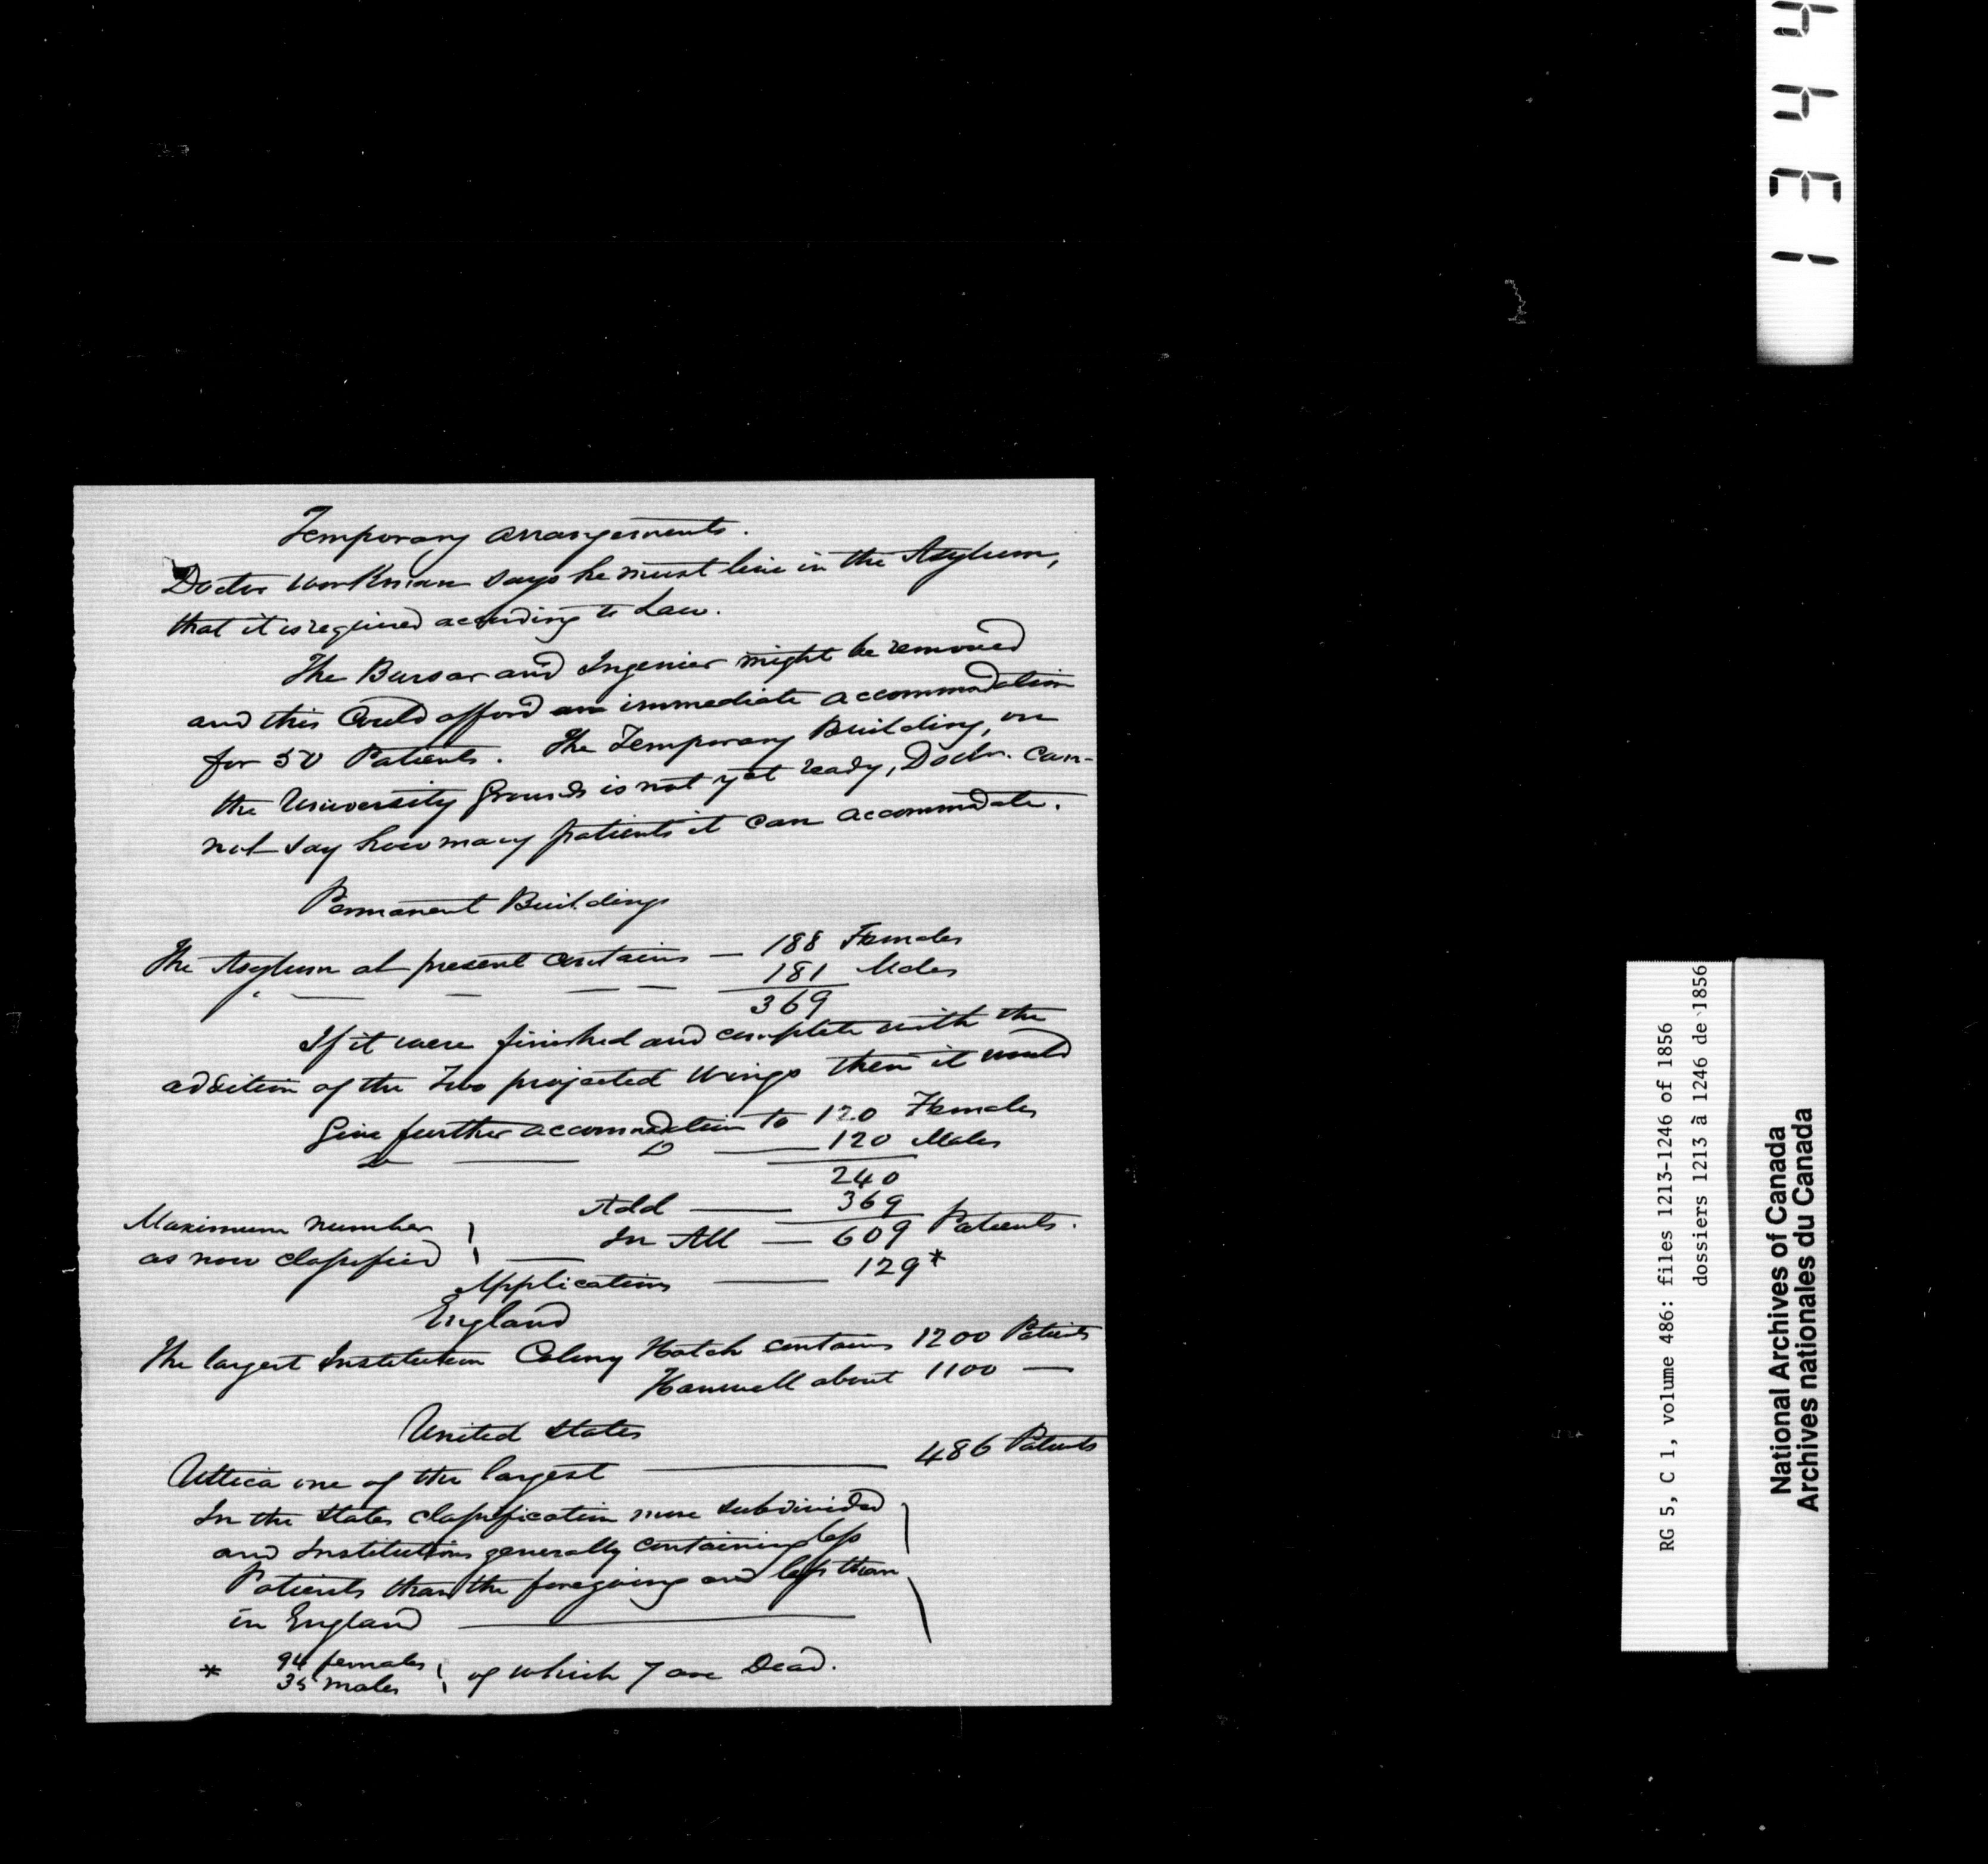 Temporary arrangements.
Doctor Workman says he must live in the Asylum,
that it is required according to Law.
The Bursar and Ingenier might be removed
and this Could afford an immediate accommodation
for 50 Patients. The Temporary Building, on
the University Grounds is not yet ready, Doctr. can-
not say how many patients it can accommodate.
Permanent Buildings
The Asylum at present contains — 188 Females
181 Males
369
If it were finished and complete with the
addition of the Two projected Wings then it would
Give further accommodation to 120 Females
Do — Do — 120 Males
240
Add — 369
Maximum number
as now classified } — In All — 609 Patients.
Applications — 129*
England
The largest Institution Colony Hatch contains 1200 Patients
Hanwell about 1100 —
United States
Uttica one of the largest — 486 Patients
In the States classification more subdivided
and Institutions generally containing less
Patients than the foregoing and less than
in England —
* 94 females
35 males } of which 7 are Dead.
1344
RG 5, C 1, volume 486: files 1213-1246 of 1856
dossiers 1213 à 1246 de 1856
National Archives of Canada
Archives nationales du Canada